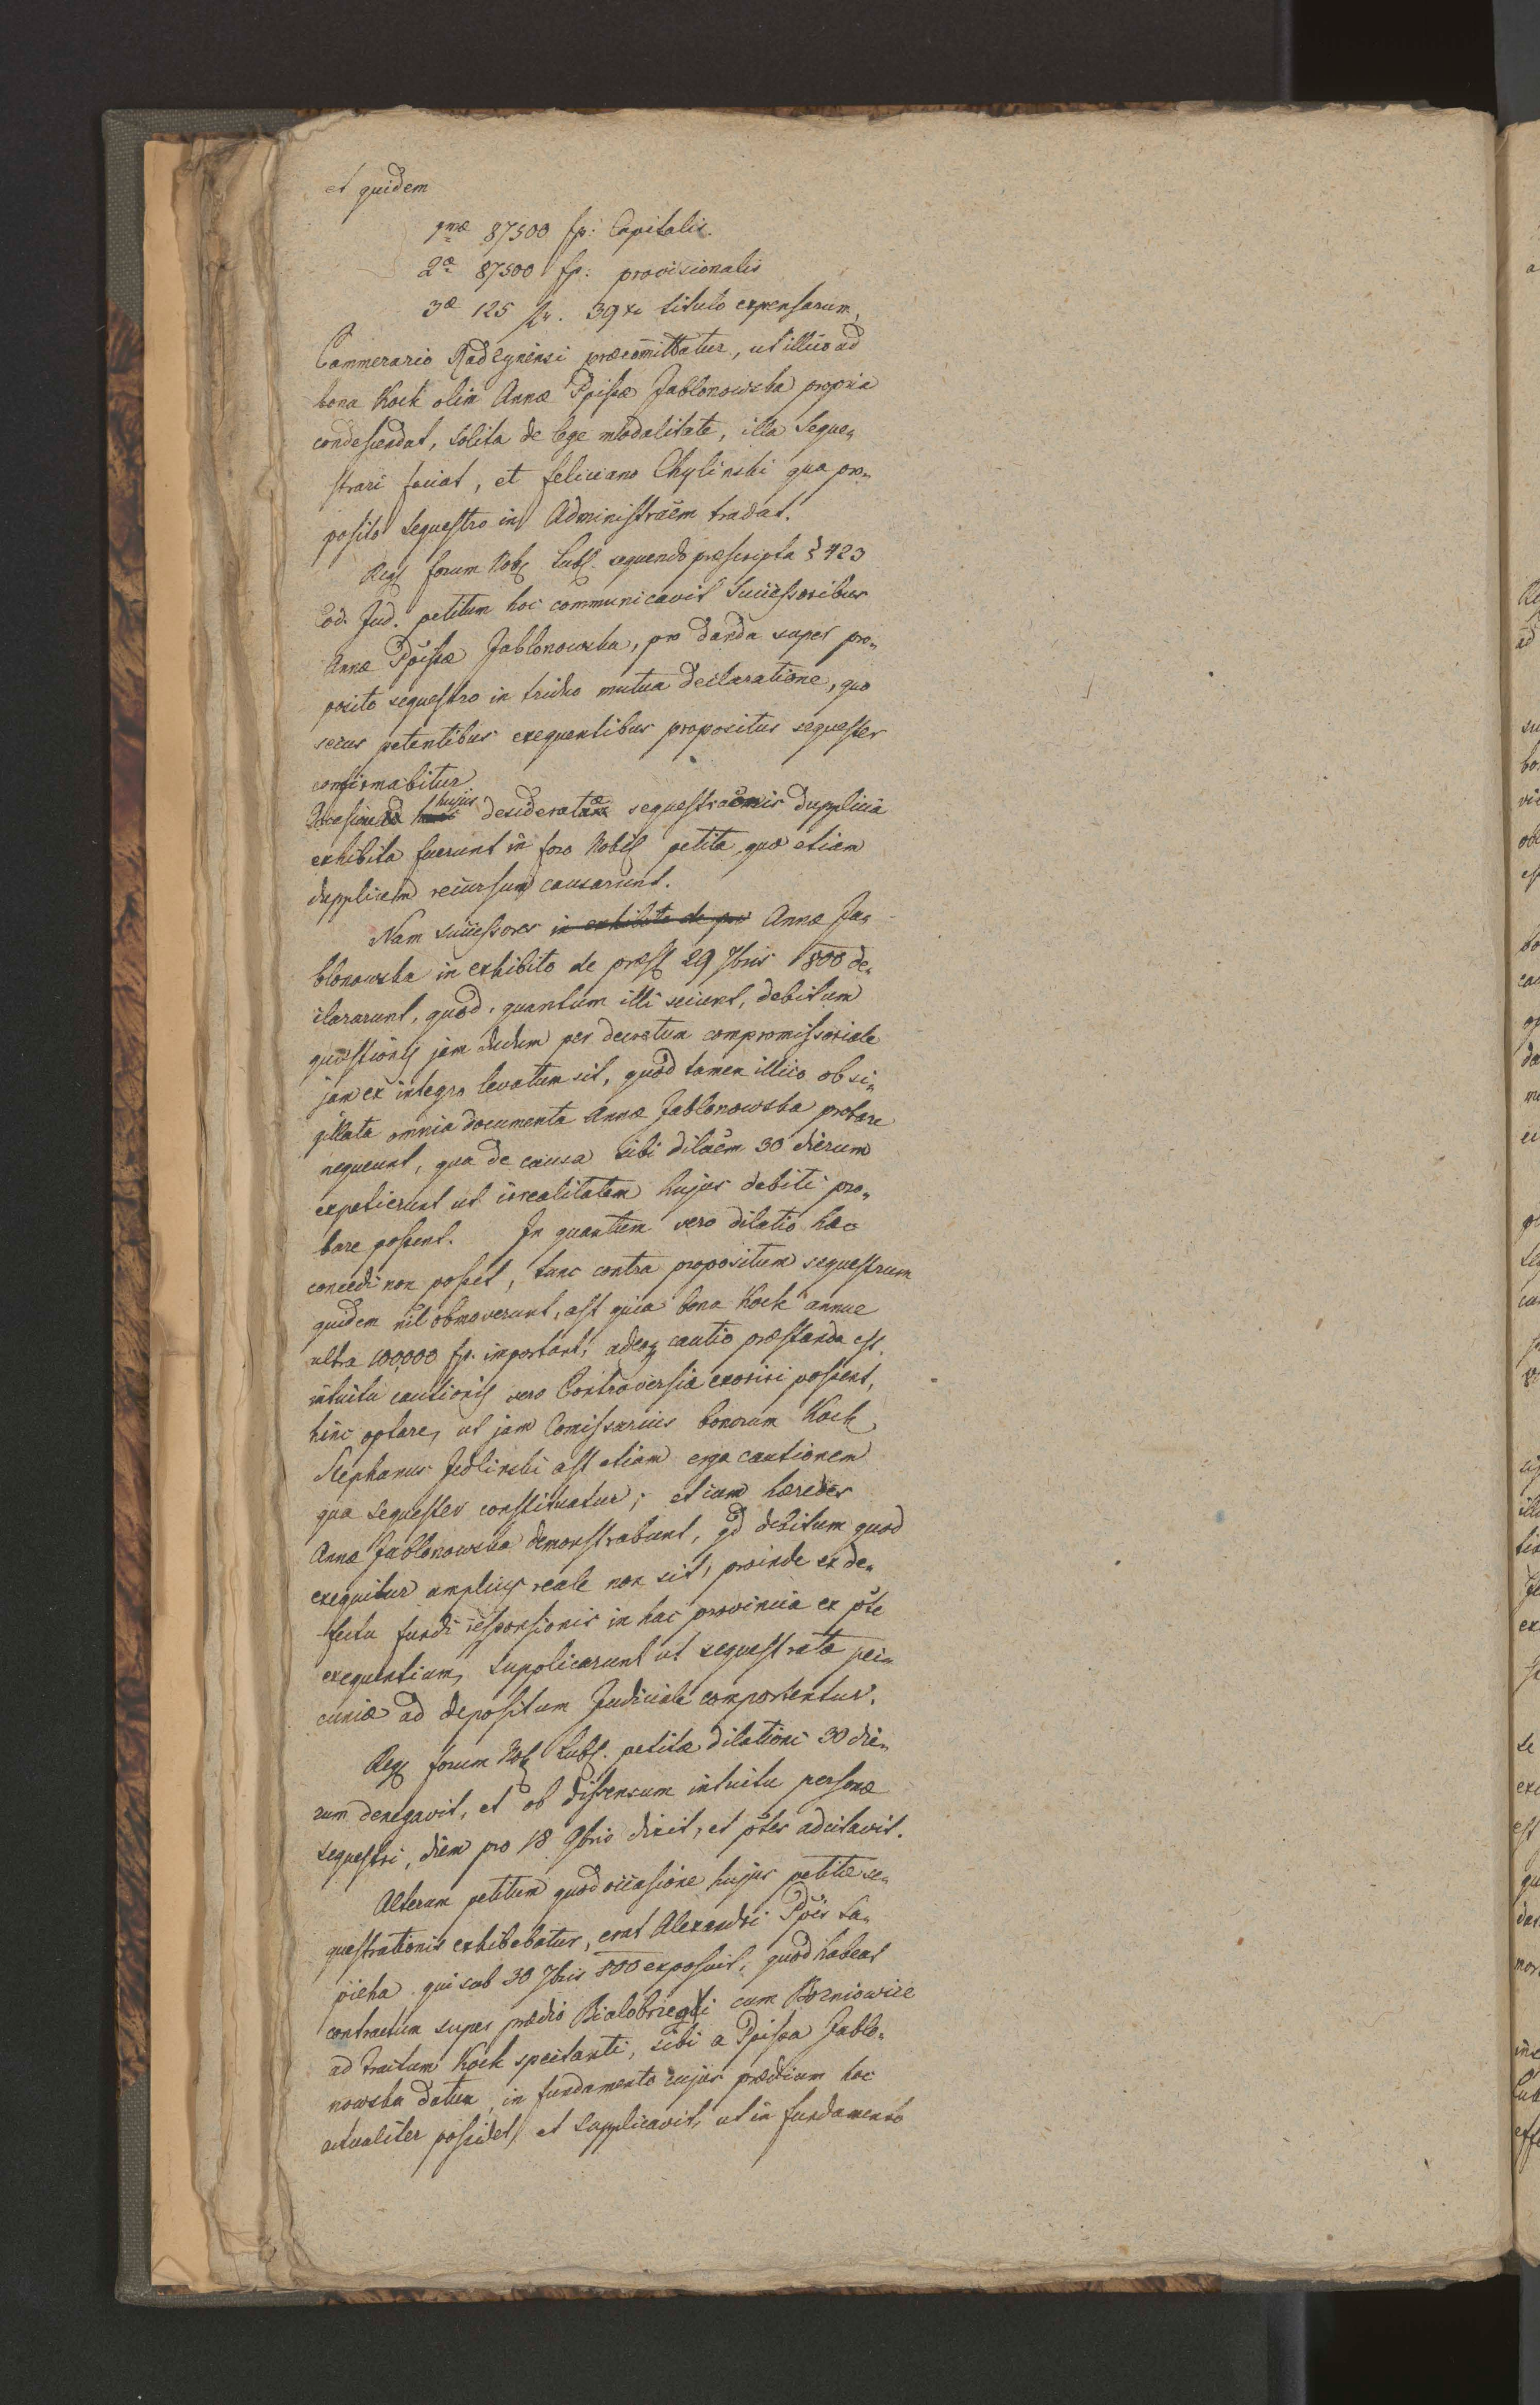 et quidem
1mæ 87500 fp: Capitalis.
2æ 87500 fp: provisionalis
3æ 125 fr. 39 xr titulo expensarum,
Cammerario Radzynensi præcom̄ittatur, ut illico ad
bona Kock olim Annæ Ppissæ Jablonowska propria
condescendat, solita de lege modalitate, illa seque„
strari faciat, et Feliciano Chylinski qua pro„
posito sequestro in Administraēm tradat.
Reg. forum Nob. Lubl. sequendo præscripta § 423
Cod. Jud. petitum hoc communicavit Successoribus
Annæ Ppissæ Jablonowska, pro danda super pro„
posito sequestro in triduo mutua declaratione, quo
secus petentibus exequentibus propositus sequester
confirmabitur
Occasione hujus desideratæ sequestraōnis dupplicia
exhibita fuerunt in foro Nobil petita, quæ etiam
dupplicem recursum causarunt.
Nam successores in exhibito de præs Annæ Ja„
blonowska in exhibito de præs 29 7bris 1800 de„
clararunt, quod, quantum illi sciunt, debitum
quæstionis jam dudum per decretum compromissoriale
jam ex integro levatum sit, quod tamen illico obsi„
gillata omnia documenta Annæ Jablonowska probare
nequeunt, qua de causa sibi dilaēm 30 dierum
expetierunt ut irrealitatem hujus debiti pro„
bare possent. In quantum vero dilatio hæc
concedi non posset, tunc contra propositum sequestrum
quidem nil obmoverunt, ast quia bona Kock annue
ultra 100,000 fp. important, adeoq cautio præstanda est,
intuitu cautionis vero Controversiæ exoriri possent,
hinc optare, ut jam Comissarius bonorum Kock
Stephanus Jedlinski ast etiam erga cautionem
qua sequester constituatur; et cum hæredes
Annæ Jablonowska demonstrabunt, qd debitum quod
exequitur amplius reale non sit, proinde ex de„
fectu fundi responsionis in hac provincia ex pte
exequentium, supplicarunt ut sequestratæ pe„
cuniæ ad depositum Judiciale comportentur.
Reg forum Nob Lubl. petitæ dilationi 30 die„
rum denegavit, et ob dissensum intuitu personæ
sequestri, diem pro 18 9bris dixit, et ptes adcitavit.
Alterum petitum quod occasione hujus petitæ se„
questrationis exhibebatur, erat Alexandri Ppis Sa„
pieha qui sub 30 7bris 800 exposuit, quod habeat
contractum super prædio Bialobrzegi cum Bozniowice
ad Tractum Kock spectanti, sibi a Ppissa Jablo„
nowska datum, in fundamento cujus prædium hoc
actualiter possidet, et supplicavit, ut in fundamento